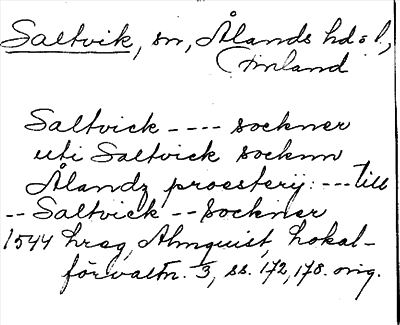 Saltvik, sn, Ålands hd o l,
Finland
Saltvick ---- sockner
uti Saltvick socknn
Ålandz proesterij: --- till
-- Saltvick -- sockner
1544 hrsg, Almquist, Lokal-
förvaltn. 3, ss. 172, 178. orig.